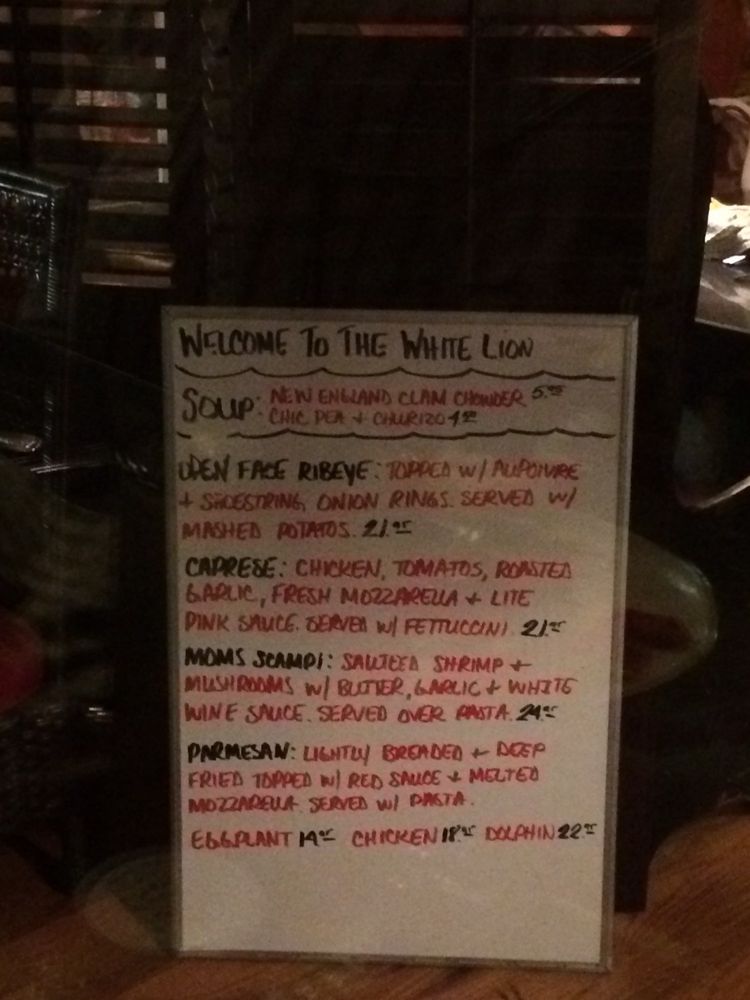 WELCOME TO THE WHITE LION
SOUP: NEW ENGLAND CLAM CHOWDER 5.95
CHIC PEA + CHURIZO 4.95
OPEN FACE RIBEYE: TOPPED W/ AUPOIVRE
+ SHOESTRING ONION RINGS. SERVED W/
MASHED POTATOS. 21.95
CAPRESE: CHICKEN, TOMATOS, ROASTED
GARLIC, FRESH MOZZARELLA + LITE
PINK SAUCE. SERVED W/ FETTUCCINI 21.95
MOMS SCAMPI: SAUTEED SHRIMP +
MUSHROOMS W/ BUTTER, GARLIC + WHITE
WINE SAUCE. SERVED OVER PASTA. 24.95
PARMESAN: LIGHTLY BREADED + DEEP
FRIED TOPPED W/ RED SAUCE + MELTED
MOZZARELLA. SERVED W/ PASTA.
EGGPLANT 14.95 CHICKEN 18.95 DOLPHIN 22.95